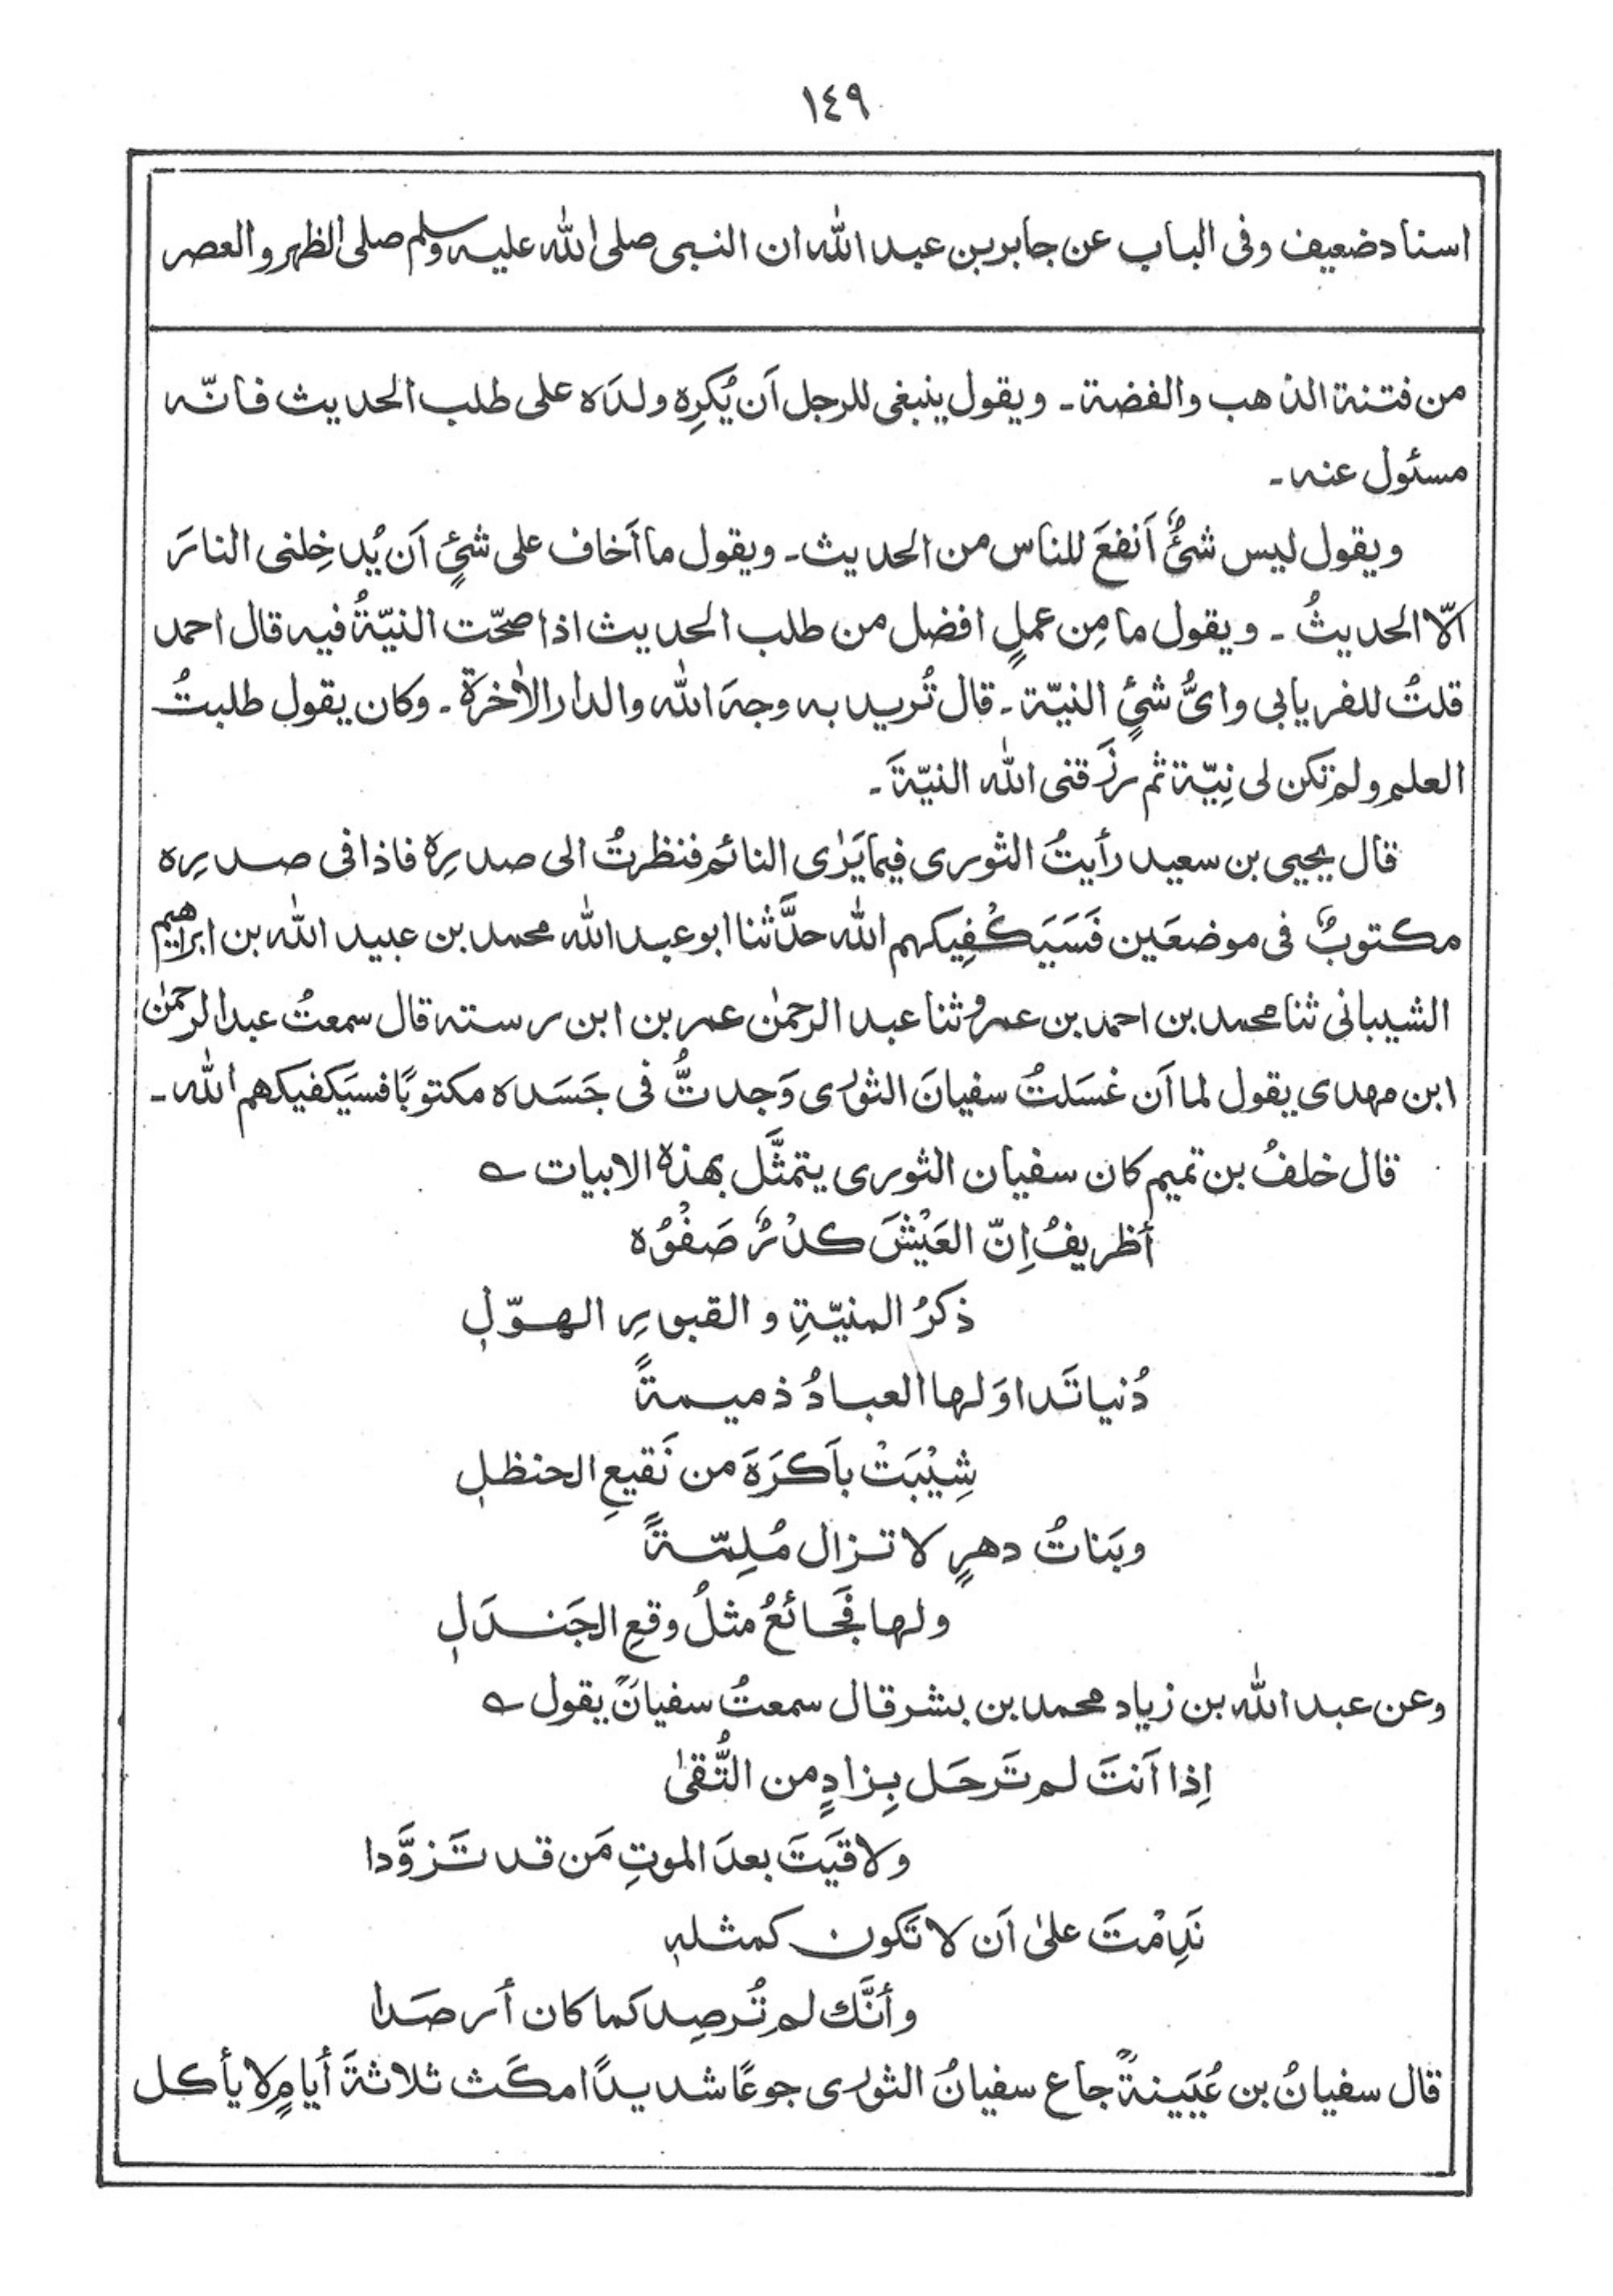 ١٤٩
اسناد ضعيف وفى الباب عن جابر بن عبد الله ان النبى صلى الله عليه وسلم صلى الظهر والعصر
من فتنة الذهب والفضة۔ ويقول ينبغى للرجل اَن يُكرِه ولدَه على طلب الحديث فانّه
مسئول عنه۔
ويقول ليس شئٌ اَنفعَ للناس من الحديث۔ ويقول ما اَخاف على شئٍ اَن يُدخِلنى النارَ
الّا الحديثُ۔ ويقول ما مِن عملٍ افضل من طلب الحديث اذا صحّت النيّةُ فيه قال احمد
قلتُ للفريابى واىُّ شئٍ النيّة۔ قال تُريد به وجهَ الله والدار الاٰخرة۔ وكان يقول طلبتُ
العلم ولم تكن لى نِيّة ثم رزَقنى الله النيّةَ۔
قال يحيى بن سعيد رأيتُ الثورى فيما يَرٰى النائم فنظرتُ الى صدرِه فاذا فى صدرِه
مكتوبٌ فى موضعَين فَسَيَكْفِيكهم الله حدَّثنا ابو عبد الله محمد بن عبيد الله بن ابراهيم
الشيبانى ثنا محمد بن احمد بن عمرو ثنا عبد الرحمٰن عمر بن ابن رسته قال سمعتُ عبد الرحمٰن
ابن مهدى يقول لما اَن غسَلتُ سفيانَ الثورى وَجدتُّ فى جَسَده مكتوبًا فسيَكفيكهم الله۔
قال خلفُ بن تميم كان سفيان الثورى يتمثَّل بهذه الابيات ؎
أظريفُ اِنّ العَيْشَ كدْرٌ صَفْوُه
ذكرُ المنيّةِ و القبورِ الهوّلِ
دُنيا تَداوَلها العبادُ ذميمةً
شِيْبَتْ باَكرَهَ من نَقيعِ الحنظلِ
وبَناتُ دهرٍ لا تزال مُلِمّةً
ولها فَجائعُ مثلُ وقعِ الجَندَلِ
وعن عبد الله بن زياد محمد بن بشر قال سمعتُ سفيانَ يقول ؎
اِذا اَنتَ لم تَرحَل بِزادٍ من التُّقىٰ
ولاقَيَتَ بعدَ الموتِ مَن قد تَزوَّدا
نَدِمْتَ علىٰ اَن لا تَكون كمثلهٖ
وأنَّك لم تُرصِد كما كان أرصَدا
قال سفيانُ بن عُيَينةَ جاع سفيانُ الثورى جوعًا شديدًا مكَث ثلاثةَ أيامٍ لا يأكل